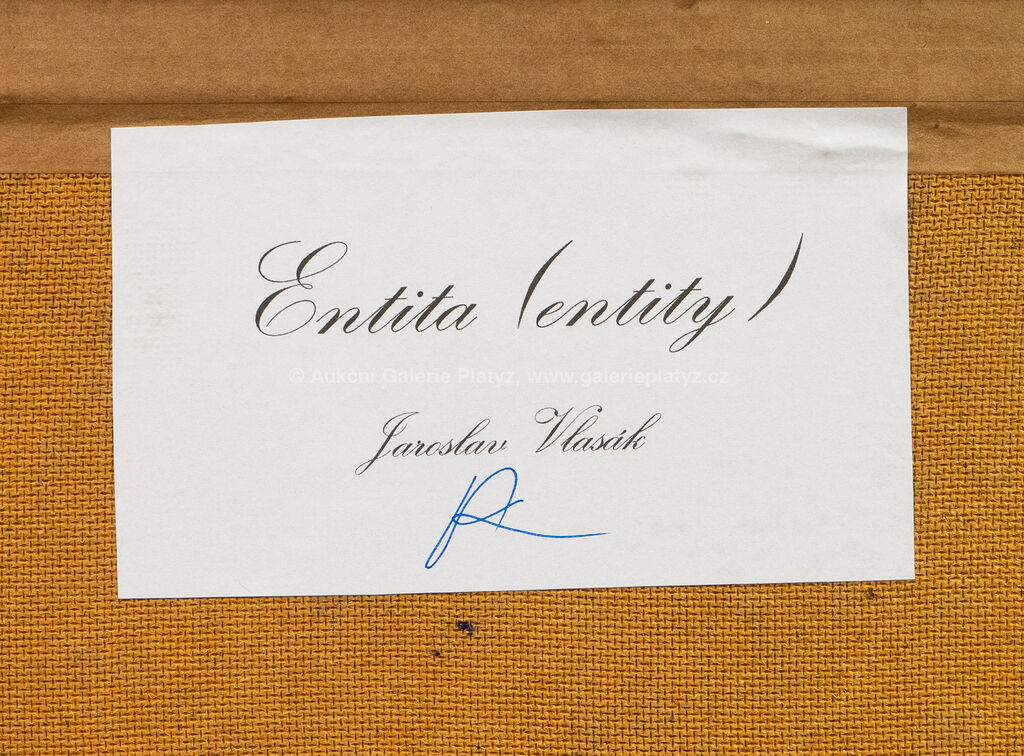 Entita (entity)
© Aukční Galerie Platýz, www.galerieplatyz.cz
Jaroslav Vlasák